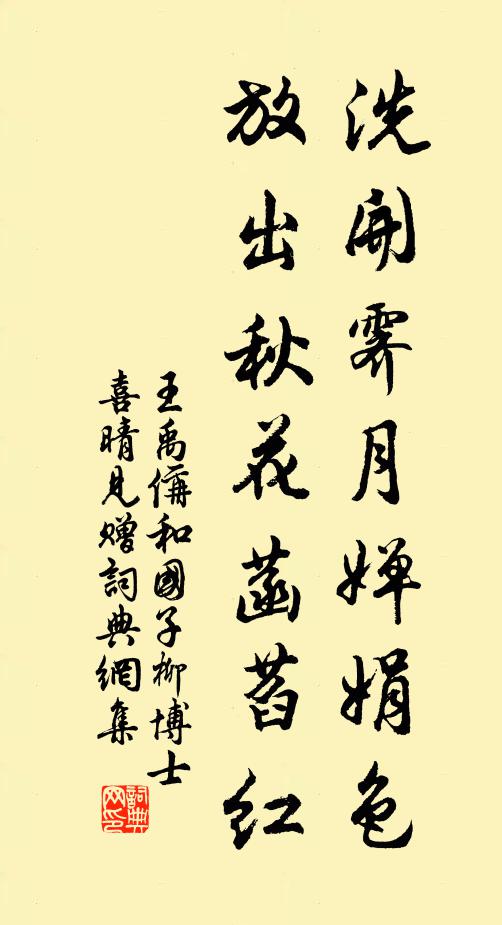 洗開霽月嬋娟色
放出秋花菡萏紅
王禹偁和國子柳博士
喜晴見贈詞典網集
詞典
网印